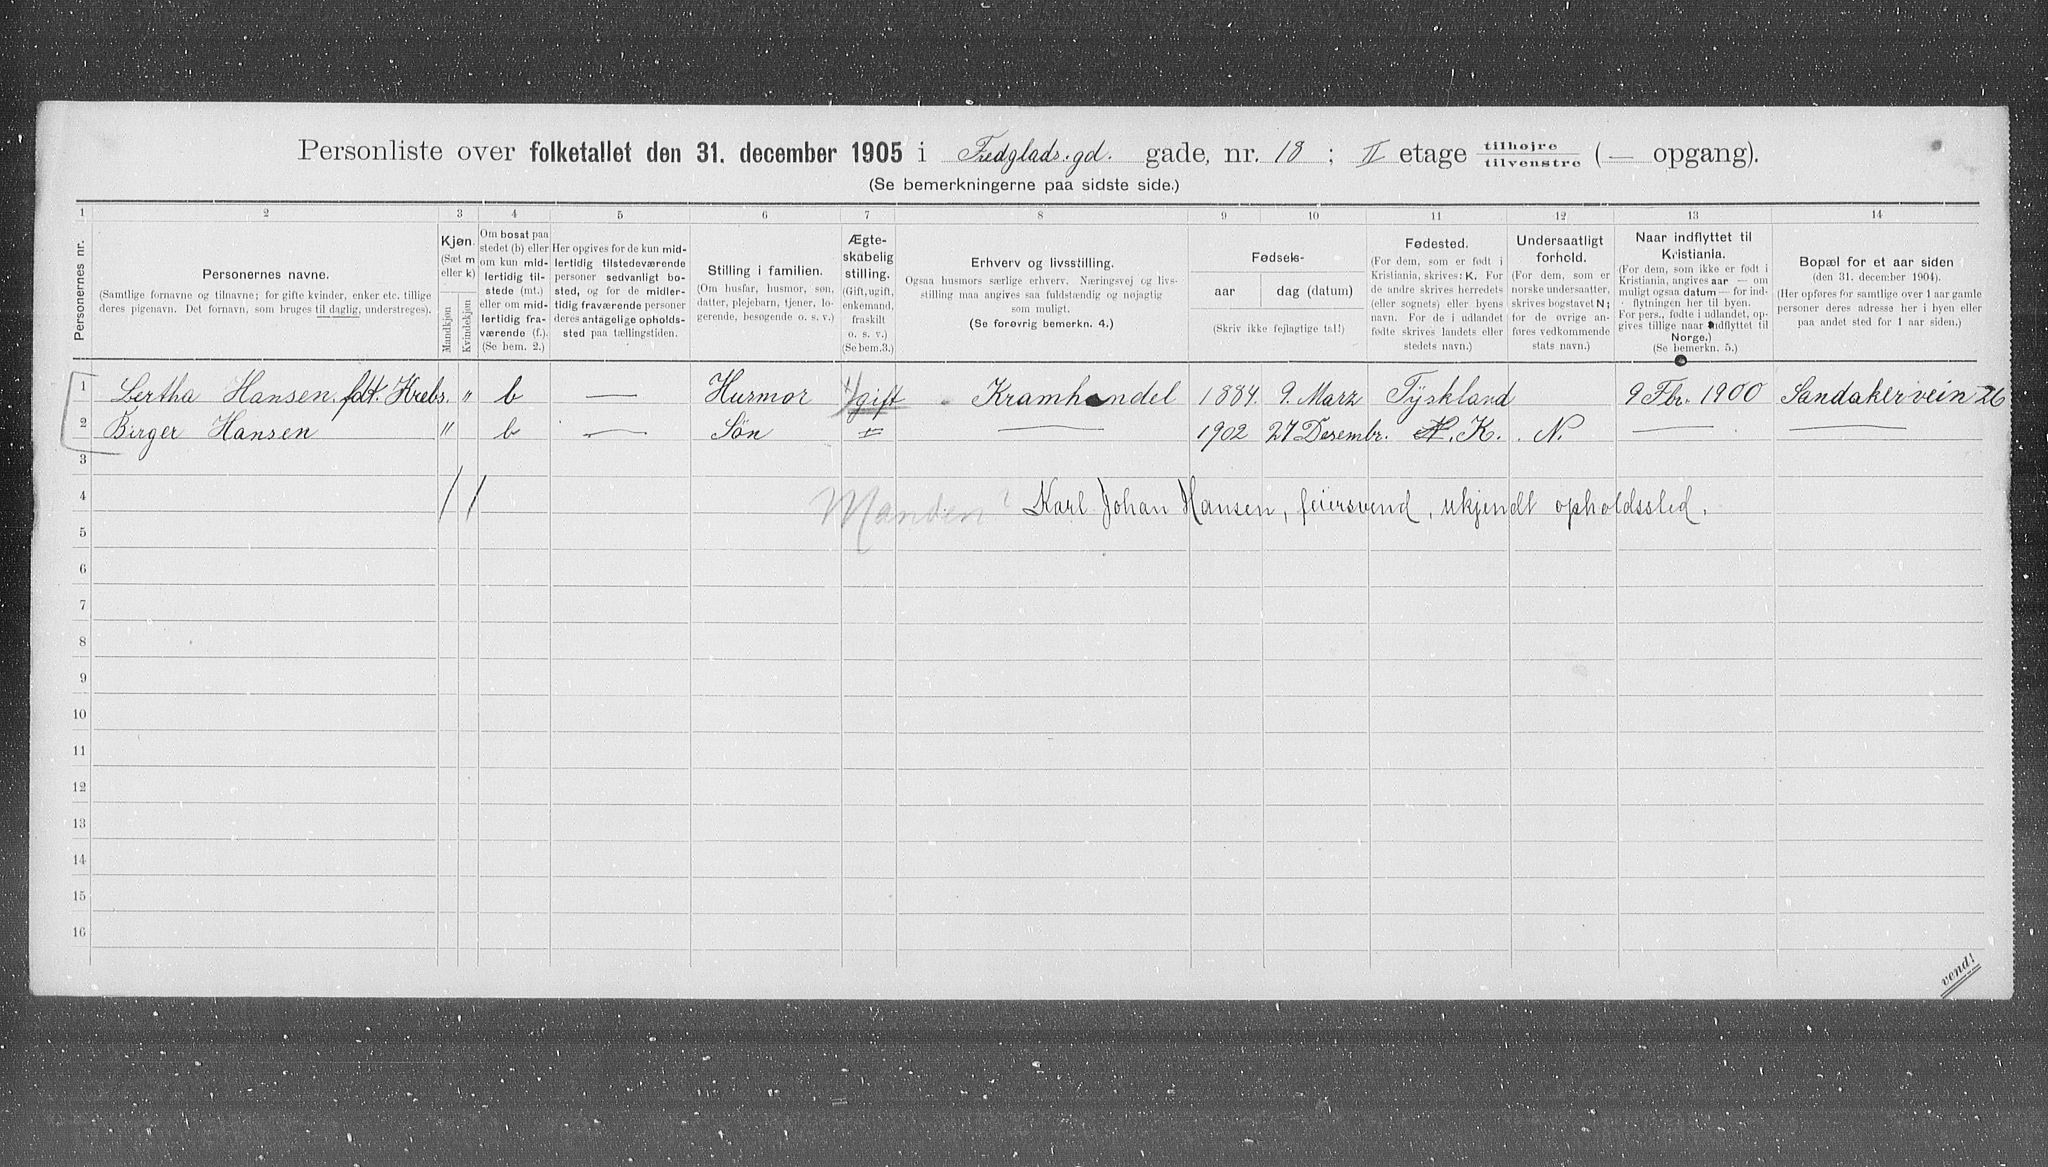 Personliste over folketallet den 31. december 1905 i Fredglads.gd. gade, nr. 18 ; II etage tilhøjre tilvenstre ( — opgang).
(Se bemerkningerne paa sidste side.)
1 2 3 4 5 6 7 8 9 10 11 12 13 14
Personernes nr.
Personernes navne.
(Samtlige fornavne og tilnavne; for gifte kvinder, enker etc. tillige
deres pigenavn. Det fornavn, som bruges til daglig, understreges).
Kjøn.
(Sæt m
eller k)
Mandkjøn
Kvindekjøn
Om bosat paa
stedet (b) eller
om kun mid-
lertidig til-
stede (mt.)
eller om mid-
lertidig fra-
værende (f.).
(Se bem. 2.)
Her opgives for de kun mid-
lertidig tilstedeværende
personer sedvanligt bo-
sted, og for de midler-
tidig fraværende personer
deres antagelige opholds-
sted paa tællingstiden.
Stilling i familien.
(Om husfar, husmor, søn,
datter, plejebarn, tjener, lo-
gerende, besøgende o. s. v.)
Ægte-
skabelig
stilling.
(Gift, ugift,
enkemand,
fraskilt
o. s. v.)
(Se bem. 3.)
Erhverv og livsstilling.
Ogsaa husmors særlige erhverv. Næringsvej og livs-
stilling maa angives saa fuldstændig og nøjagtig
som muligt.
(Se forøvrig bemerkn. 4.)
Fødsels-
aar
dag (datum)
(Skriv ikke fejlagtige tal!)
Fødested.
(For dem, som er født i
Kristiania, skrives: K. For
de andre skrives herredets
(eller sognets) eller byens
navn. For de i udlandet
fødte skrives landets eller
stedets navn.)
Undersaatligt
forhold.
(For dem, som er
norske undersaatter,
skrives bogstavet N;
for de øvrige an-
føres vedkommende
stats navn.)
Naar indflyttet til
Kristiania.
(For dem, som ikke er født i
Kristiania, angives aar — om
muligt ogsaa datum — for ind-
flytningen her til byen.
For pers., fødte i udlandet, op-
gives tillige naar indflyttet til
Norge.)
(Se bemerkn. 5.)
Bopæl for et aar siden
(den 31. december 1904).
(Her opføres for samtlige over 1 aar gamle
personer deres adresse her i byen eller
paa andet sted for 1 aar siden.)
1 Bertha Hansen. fdt. Krebs. " b — Husmor gift Kramhandel 1884 9. Marz Tyskland 9 Fbr. 1900 Sandakervein 26
2 Birger Hansen " b — Sön — 1902 27 Desembr. K. N. — —
3
4 Manden? Karl Johan Hansen, feiersvend, ukjendt opholdssted.
5
6
7
8
9
10
11
12
13
14
15
16
vend!